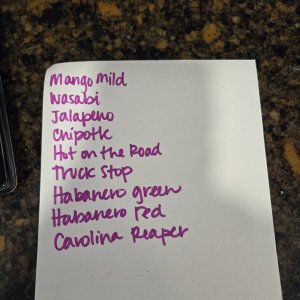 Mango Mild
Wasabi
Jalapeno
Chipotle
Hot on the Road
Truck Stop
Habanero green
Habanero red
Carolina Reaper